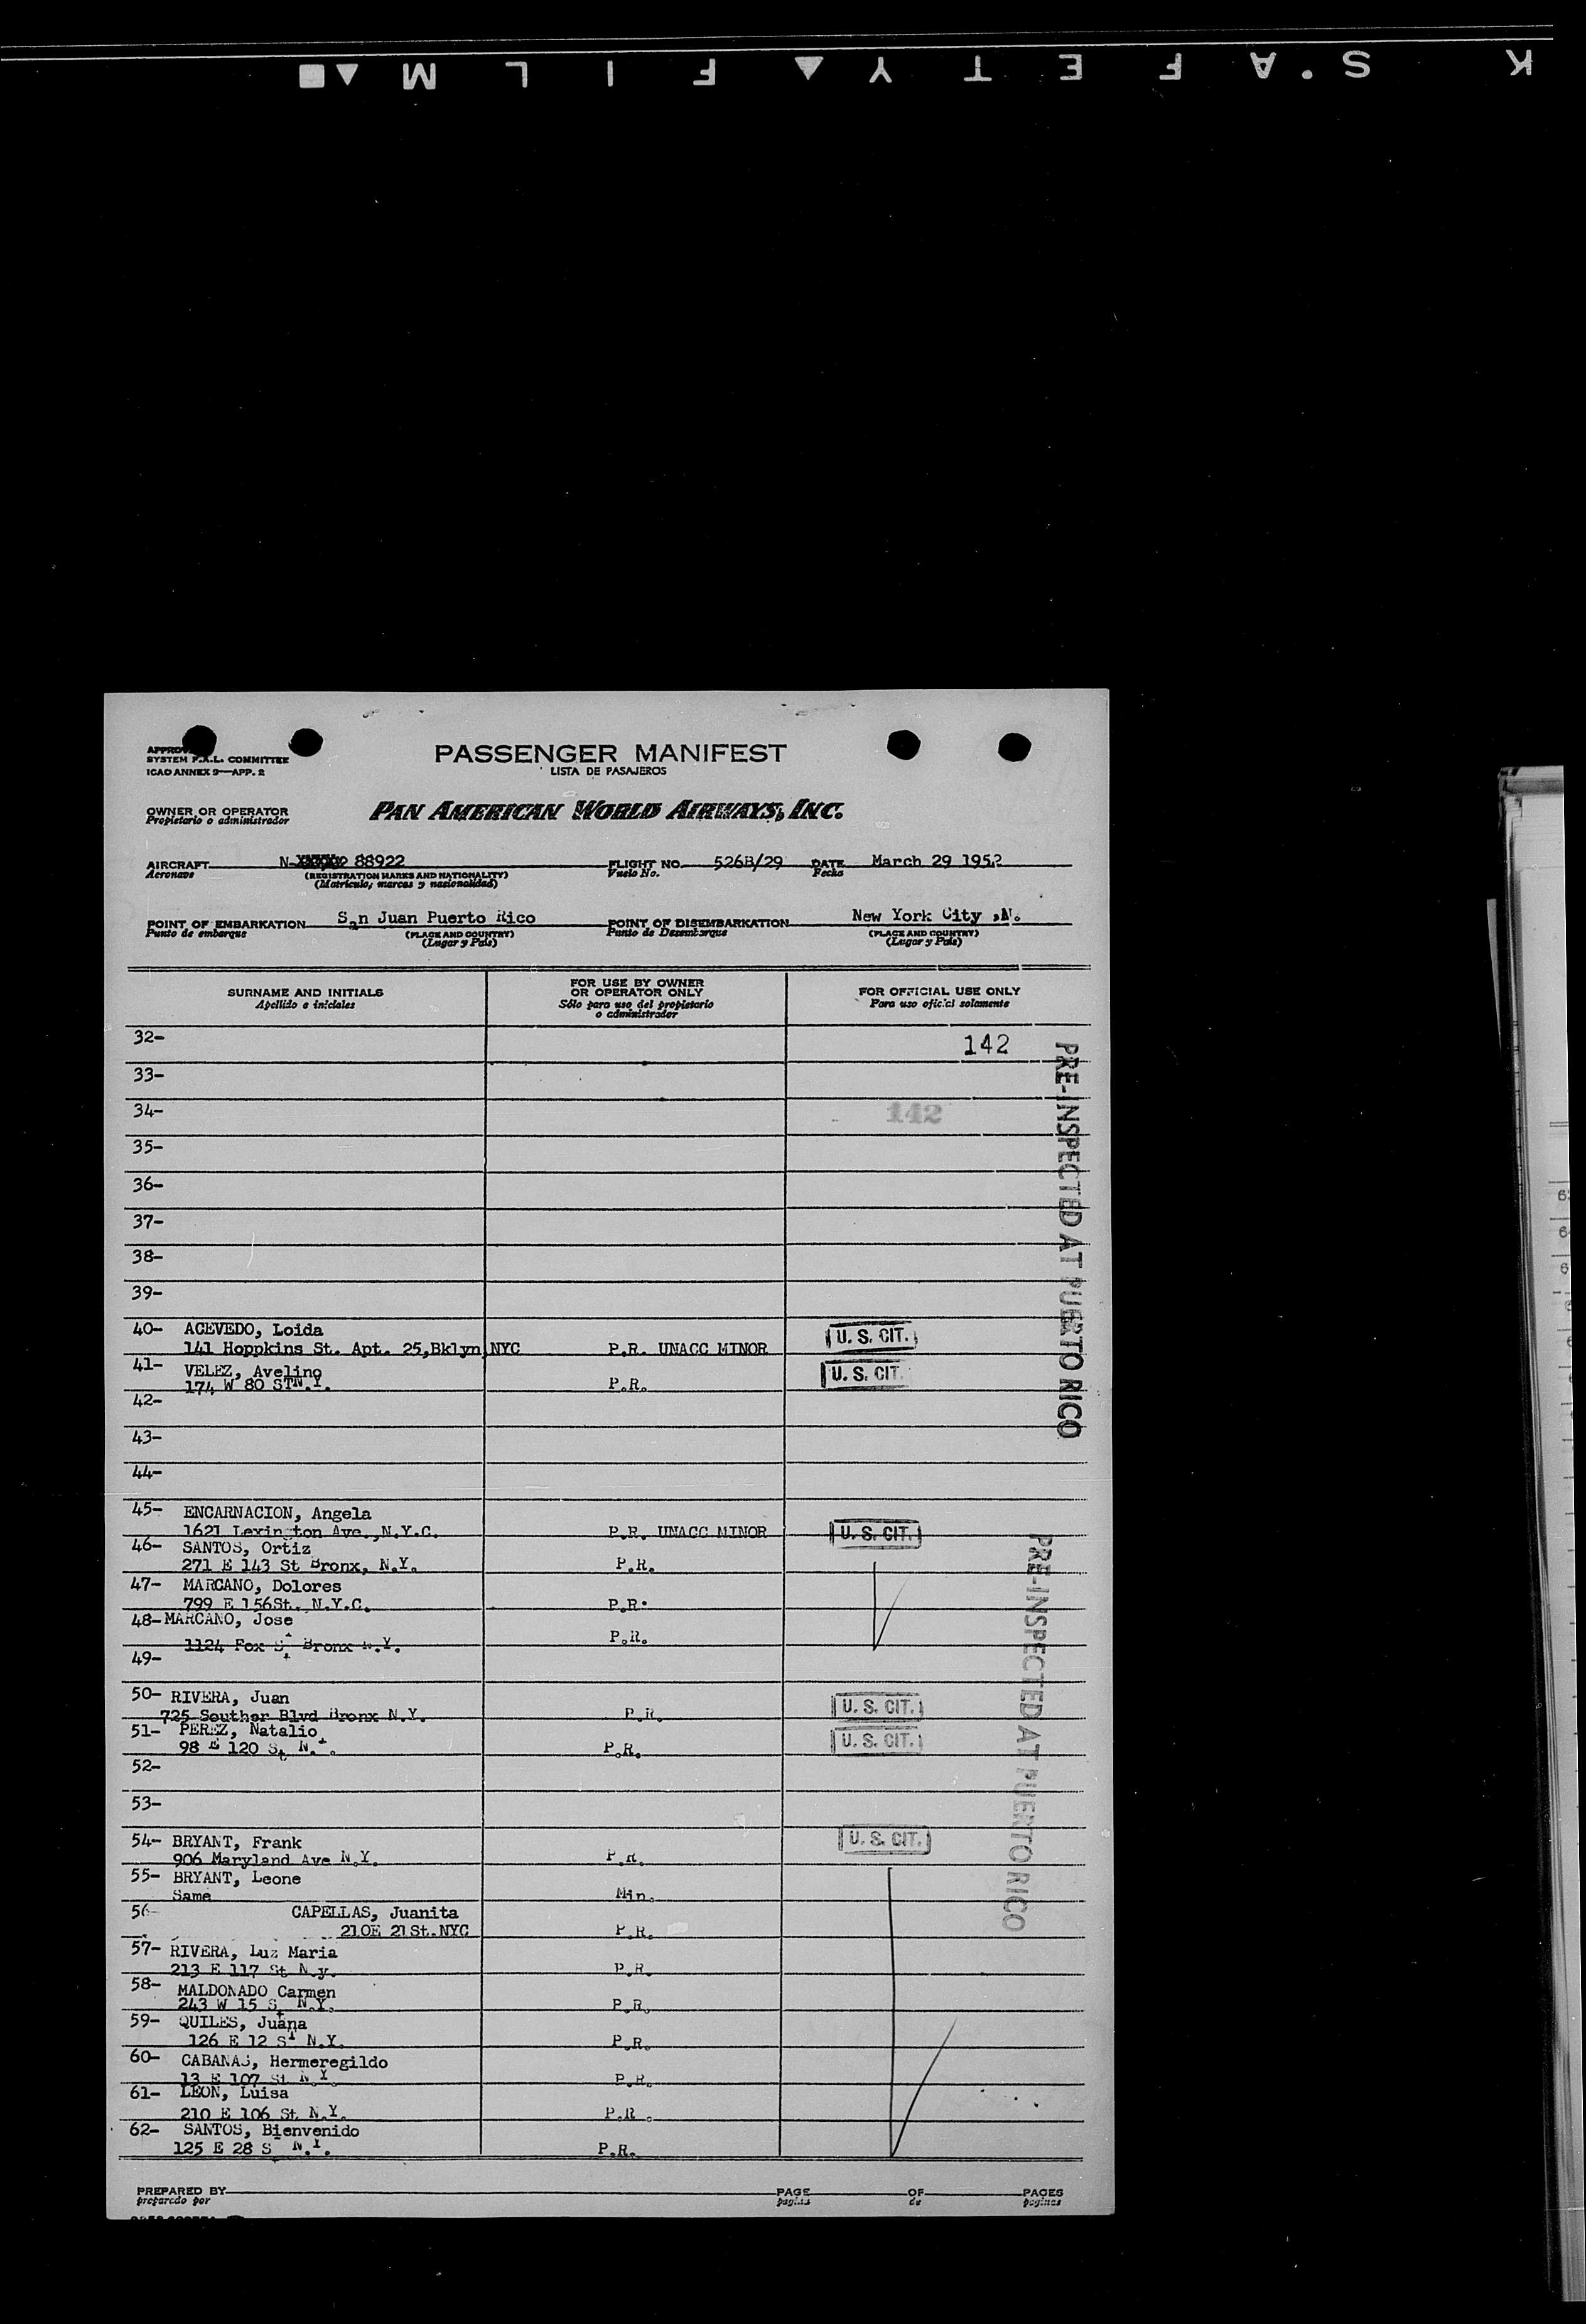 K S'AFETY▲FILM▲■
APPROV
SYSTEM F.A.L. COMMITTEE
ICAO ANNEX 9—APP. 2
PASSENGER MANIFEST
LISTA DE PASAJEROS
OWNER OR OPERATOR
Propietario o administrador
PAN AMERICAN WORLD AIRWAYS, INC.
AIRCRAFT N- 88922 FLIGHT NO. 526B/29 DATE March 29 1952
Aeronave (REGISTRATION MARKS AND NATIONALITY) Vuelo No. Fecha
(Matrícula; marcas y nacionalidad)
POINT OF EMBARKATION San Juan Puerto Rico POINT OF DISEMBARKATION New York City ,N.
Punto de embarque (PLACE AND COUNTRY) Punto de Desembarque (PLACE AND COUNTRY)
(Lugar y País) (Lugar y País)
SURNAME AND INITIALS
Apellido e iniciales
FOR USE BY OWNER
OR OPERATOR ONLY
Sólo para uso del propietario
o administrador
FOR OFFICIAL USE ONLY
Para uso oficial solamente
32- 142
33-
34- 142
35-
36-
37-
38-
39-
PRE-INSPECTED AT PUERTO RICO
40- ACEVEDO, Loida U. S. CIT.
141 Hoppkins St. Apt. 25,Bklyn,NYC P.R. UNACC MINOR
41- VELEZ, Avelino U. S. CIT.
174 W 80 STN.Y. P.R.
42-
43-
44-
45- ENCARNACION, Angela
1621 Lexington Ave.,N.Y.C. P.R. UNACC MINOR U. S. CIT.
46- SANTOS, Ortiz
271 E 143 St Bronx, N.Y. P.R.
47- MARCANO, Dolores
799 E 156St. N.Y.C. P.R.
48- MARCANO, Jose
1124 Fox St Bronx N.Y. P.R.
49-
50- RIVERA, Juan U. S. CIT.
725 Souther Blvd Bronx N.Y. P.R.
51- PEREZ, Natalio U. S. CIT.
98 E 120 St N.Y. P.R.
52-
53-
PRE-INSPECTED AT PUERTO RICO
54- BRYANT, Frank U. S. CIT.
906 Maryland Ave N.Y. P.R.
55- BRYANT, Leone
Same Min.
56- CAPELLAS, Juanita
210E 21St.NYC P.R.
57- RIVERA, Luz Maria
213 E 117 St N.y. P.R.
58- MALDONADO Carmen
243 W 15 St N.Y. P.R.
59- QUILES, Juana
126 E 12 St N.Y. P.R.
60- CABANAS, Hermeregildo
13 E 107 St N.Y. P.R.
61- LEON, Luisa
210 E 106 St. N.Y. P.R.
62- SANTOS, Bienvenido
125 E 28 S N.Y. P.R.
PREPARED BY PAGE OF PAGES
preparado por pagina de paginas